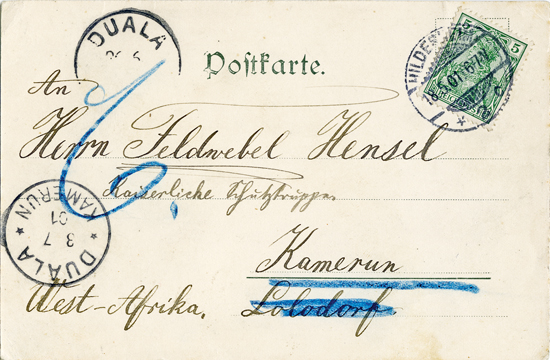 DUALA
Postkarte.
5 5
HILDESHEIM
An
Herrn Feldwebel Hensel
Kaiserliche Schutztruppe
KAMERUN
3 7
01
DUALA
Kamerun
West-Afrika. Lolodorf.